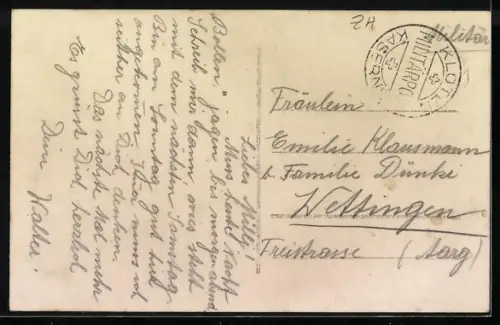 ZH
Militär
KLOTEN
MILITÄRPO
KASERN
Fräulein
Emilie Klausmann
b. Familie Dünki
Wettingen
Freistrasse (Aarg)
Liebes Milly!
Muss heute Nacht
Bollen" jagen bis morgen abend.
Schreib mir dann, was steht
mit dem nächsten Samstag.
Bin am Sonntag gut
angekommen. muss ich
seither an Dich denken.
Das nächste Mal mehr
Es grüsst Dich herzlich
Dein Walter.